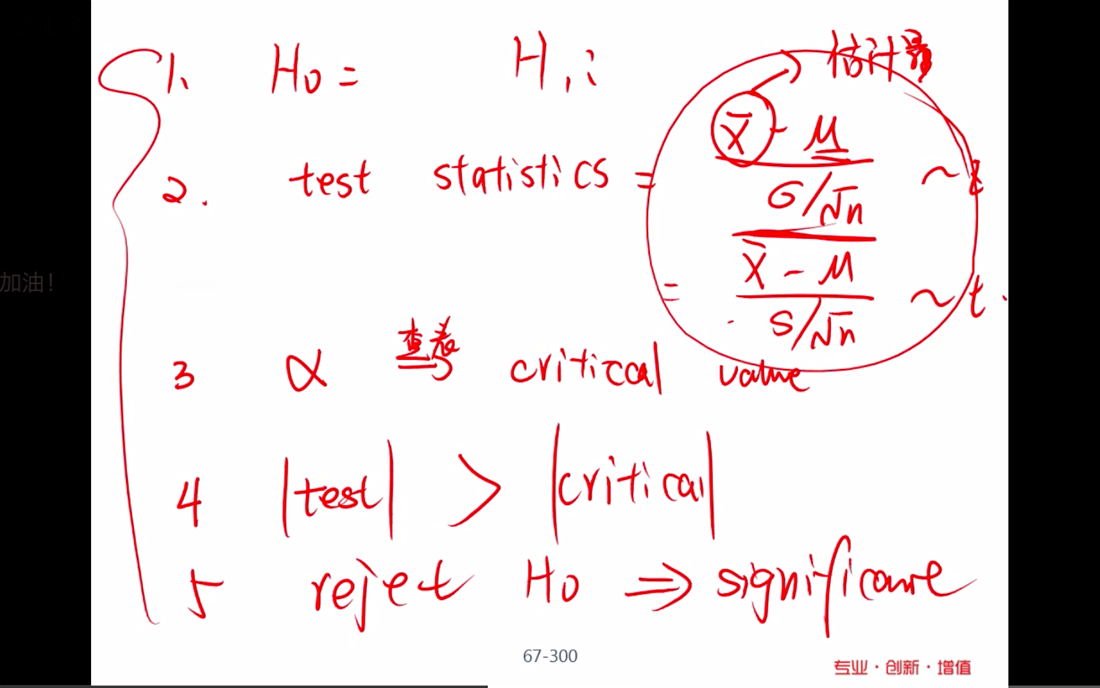 1. H₀ = H₁: 估计量
2. test statistics = (X̄ - μ)/(σ/√n) ~ z
= (X̄ - μ)/(S/√n) ~ t.
3 α 查表 ⇒ critical value
4 |test| > |critical|
5 reject H₀ ⇒ significant
加油！
67-300
专业·创新·增值